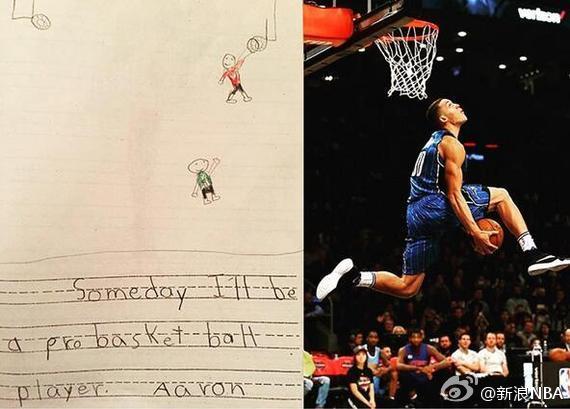 Someday I'll be
a pro basket ball
player. Aaron
verizon
10
@新浪NBA